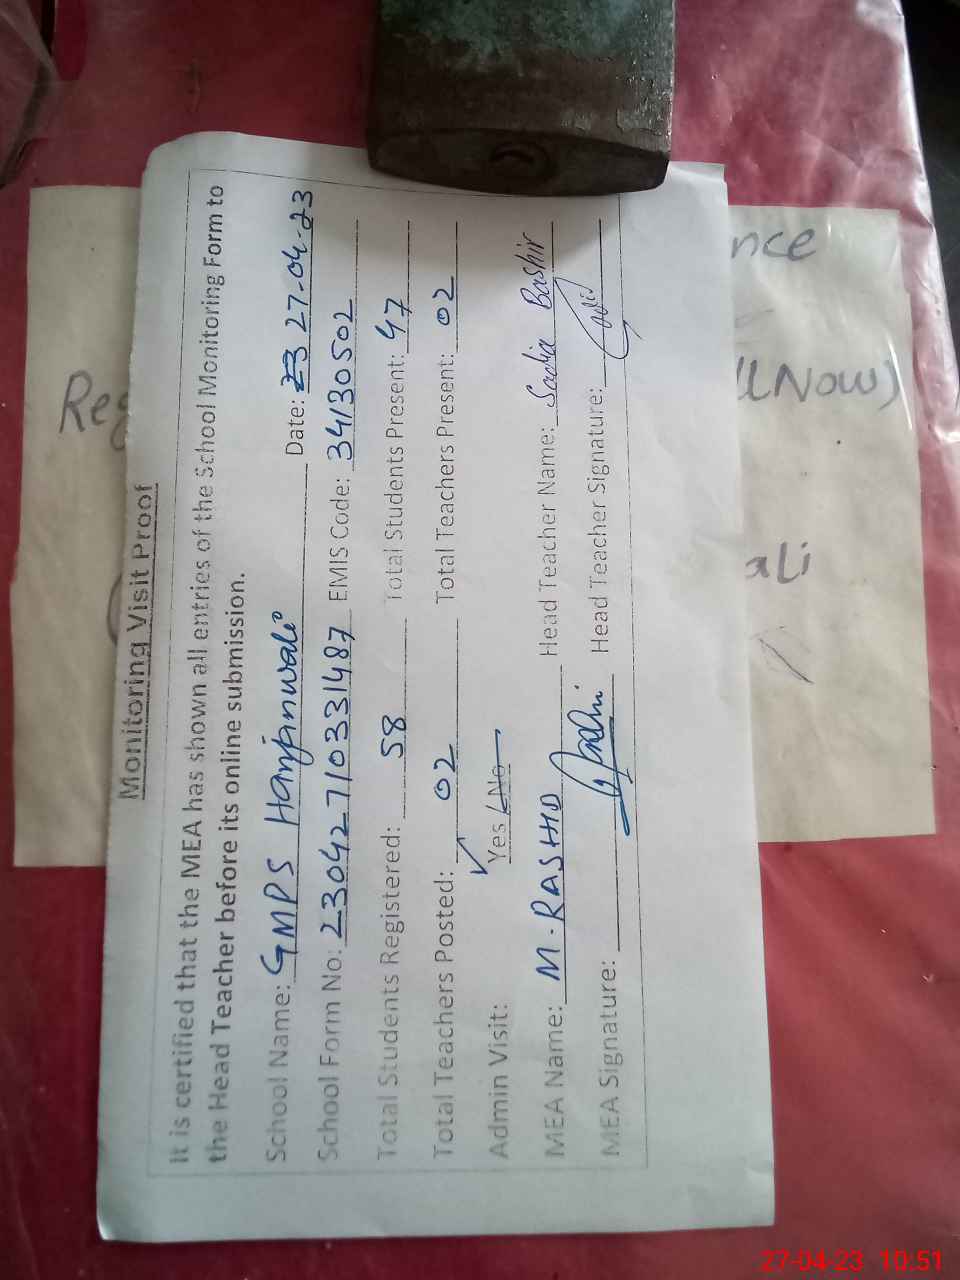 Monitoring Visit Proof
It is certified that the MEA has shown all entries of the School Monitoring Form to
the Head Teacher before its online submission.
School Name: GMPS Hanjinwali Date: 23 27-04-23
School Form No: 23042710331487 EMIS Code: 34130502
Total Students Registered: 58 Total Students Present: 47
Total Teachers Posted: 02 Total Teachers Present: 02
Admin Visit: Yes / No
MEA Name: M. RASHID Head Teacher Name: Sadia Bashir
MEA Signature: Head Teacher Signature:
Reg
nce
llNow)
ali
27-04-23 10:51